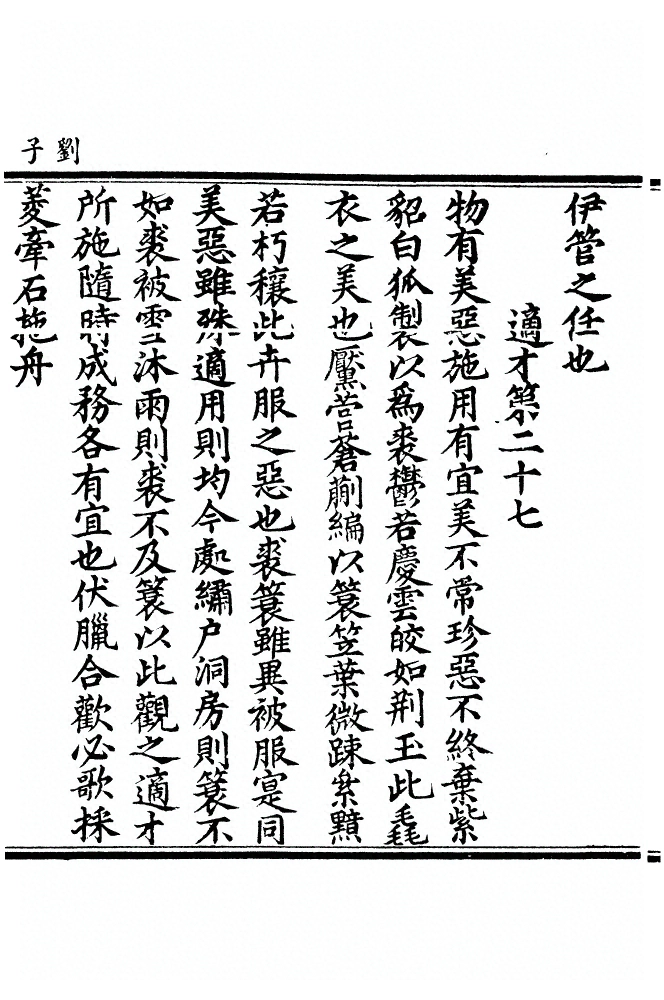 劉子
伊管之任也
適才第二十七
物有美惡施用有宜美不常珍惡不終棄紫
貂白狐製以爲裘鬱若慶雲皎如荆玉此毳
衣之美也黶菅蒼蒯編以簑笠葉微踈系黯
若朽穰此卉服之惡也裘簑雖異被服寔同
美惡雖殊適用則均今處繡户洞房則簑不
如裘被雪沐雨則裘不及簑以此觀之適才
所施隨時成務各有宜也伏臘合歡必歌採
菱牽石拖舟